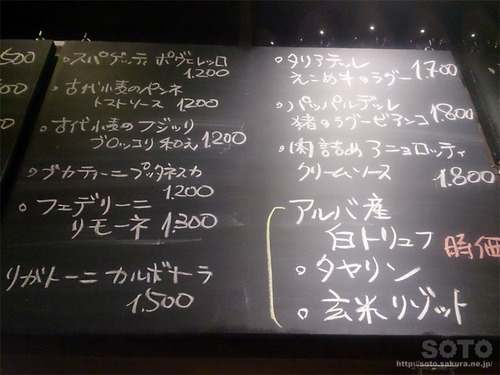 500
00
0
・スパゲッティ ポヴェレッロ
1.200
・古代小麦のペンネ
トマトソース 1200
・古代小麦のフジッリ
ブロッコリ和え 1.200
・ブカティーニ プッタネスカ
1.200
・フェデリーニ
リモーネ 1.300
リガトーニ カルボナラ
1.500
・タリアテッレ
えこめ牛のラグー 1.700
・パッパルデッレ
猪のラグービアンコ 1.800
・肉詰めアニョロッティ
クリームソース
1.800
アルバ産
白トリュフ 時価
・タヤリン
・玄米リゾット
SOTO
http://soto.sakura.ne.jp/